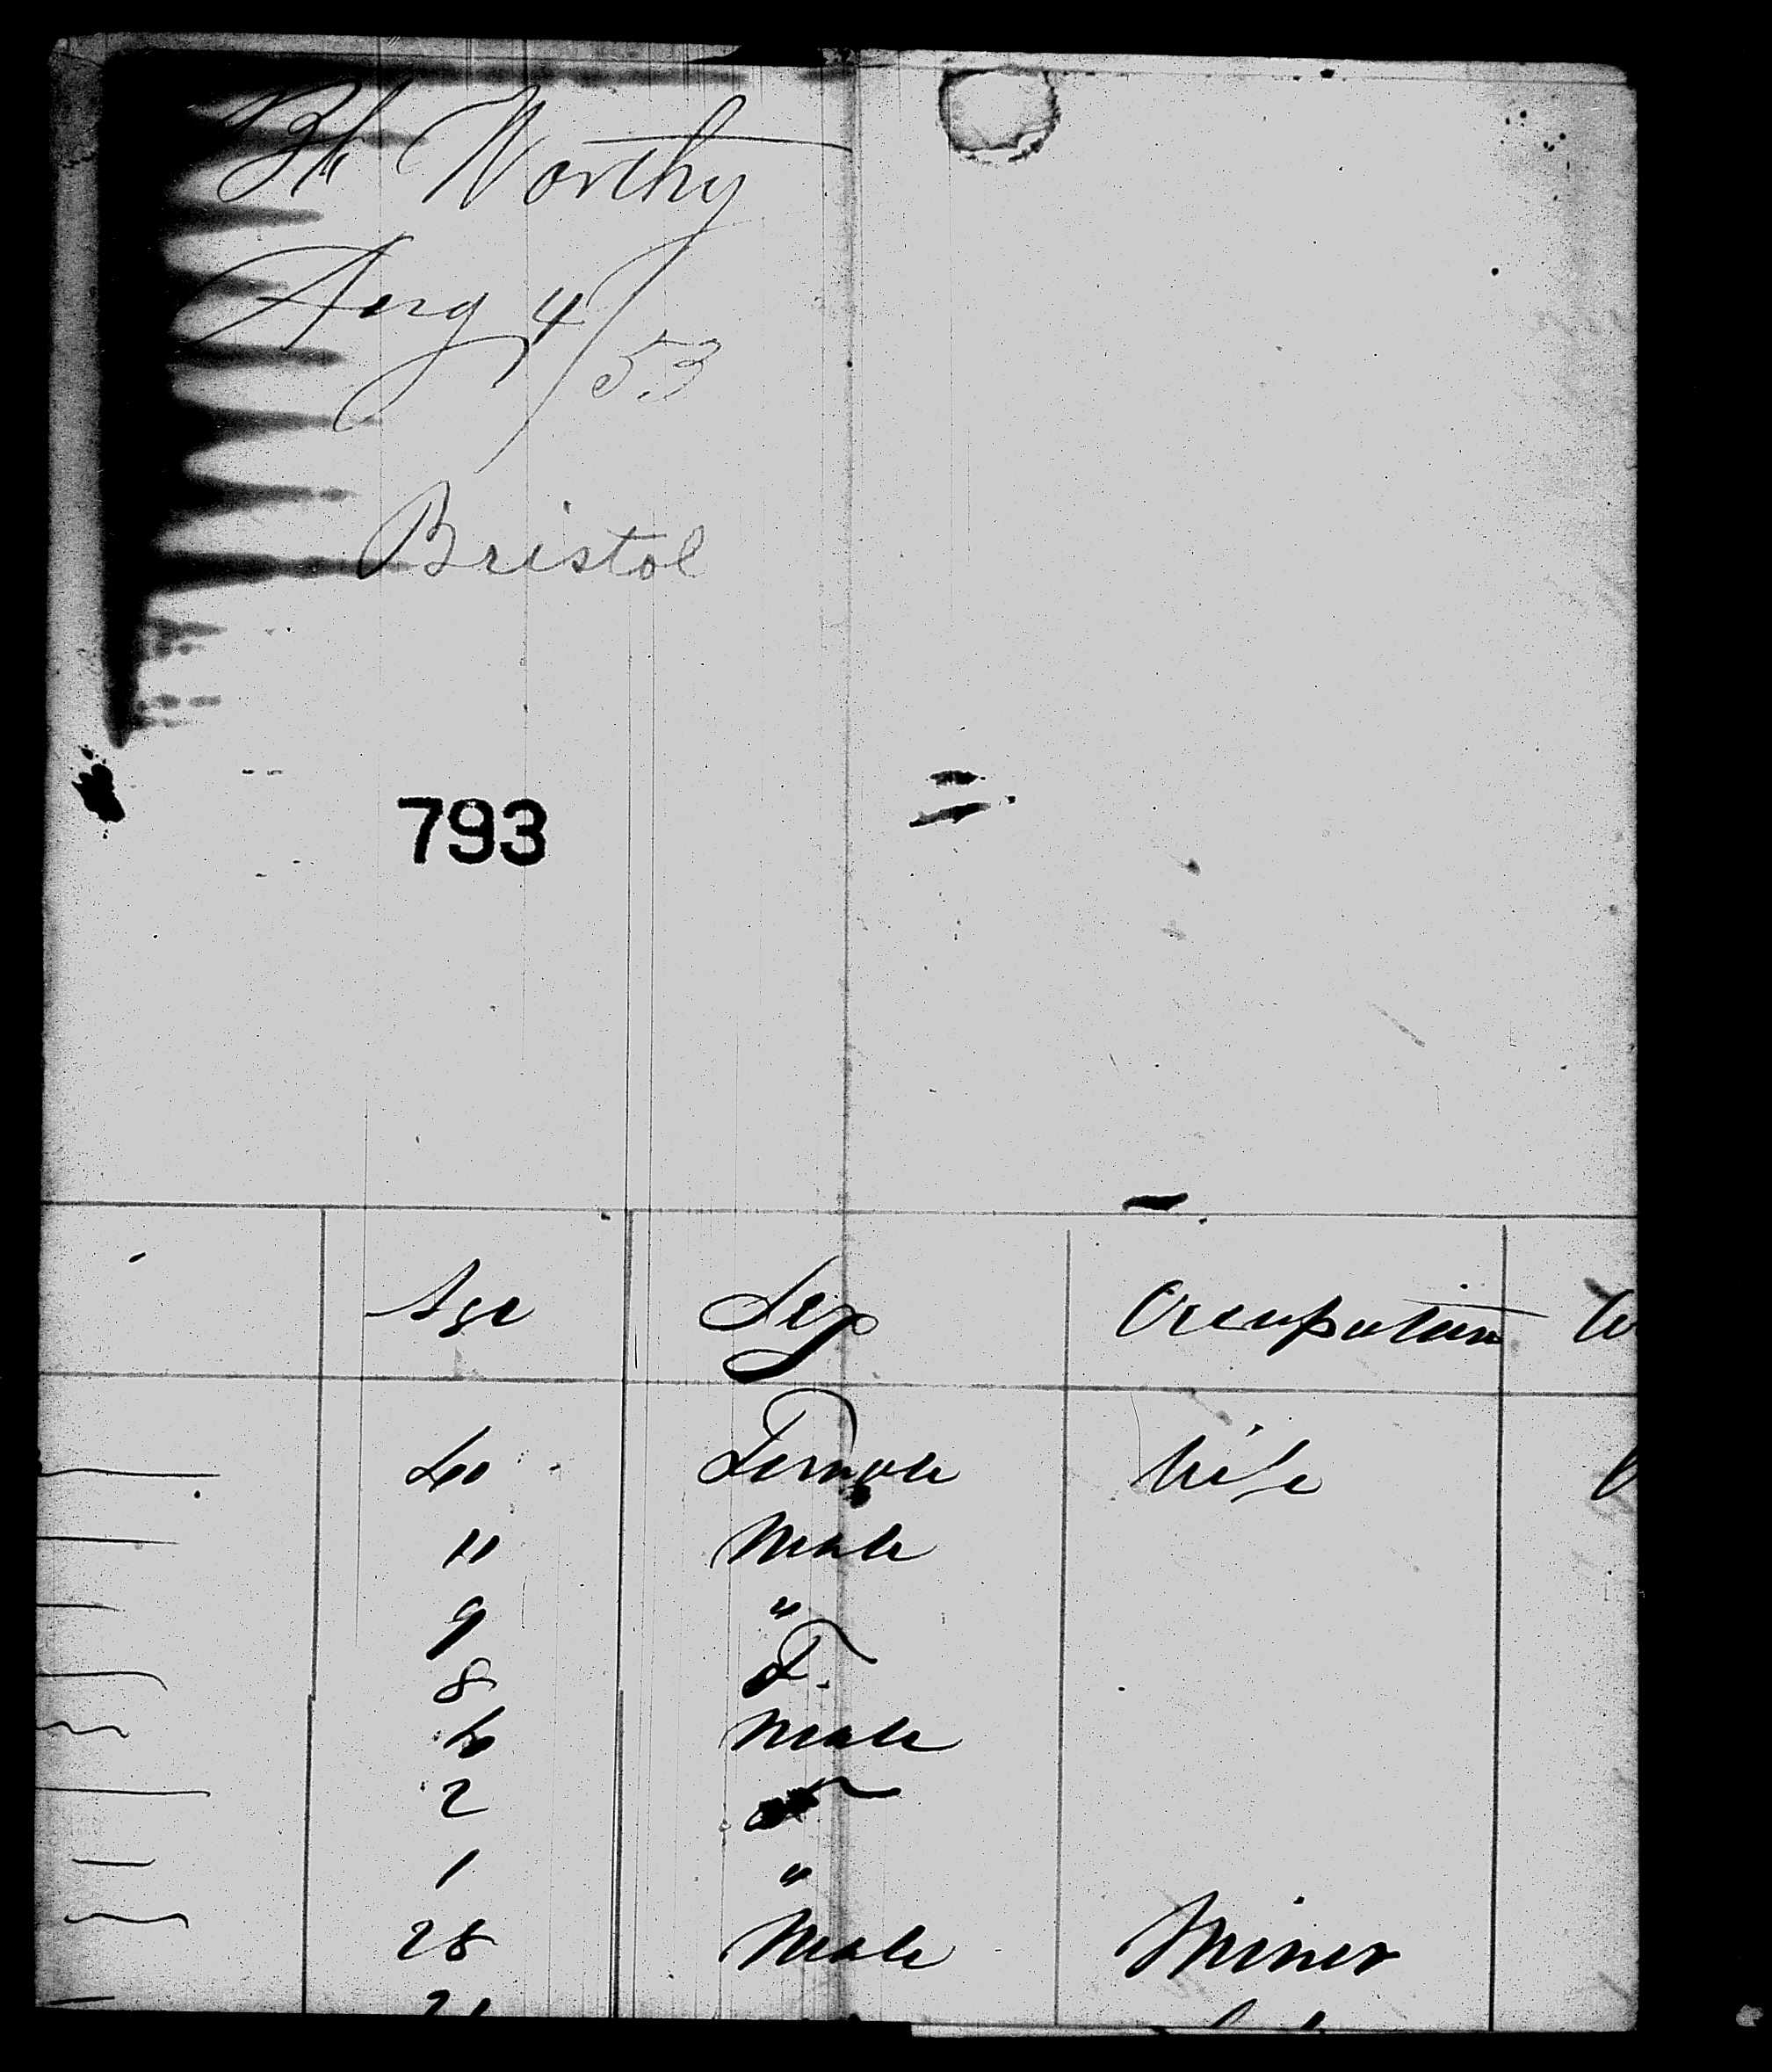 Bk Worthy
Aug 4/53
Bristol
793
Age Sex Occupation
40 Female Wife
11 Male
9 "
8 F.
6 Male
2
1 "
28 Male Miner